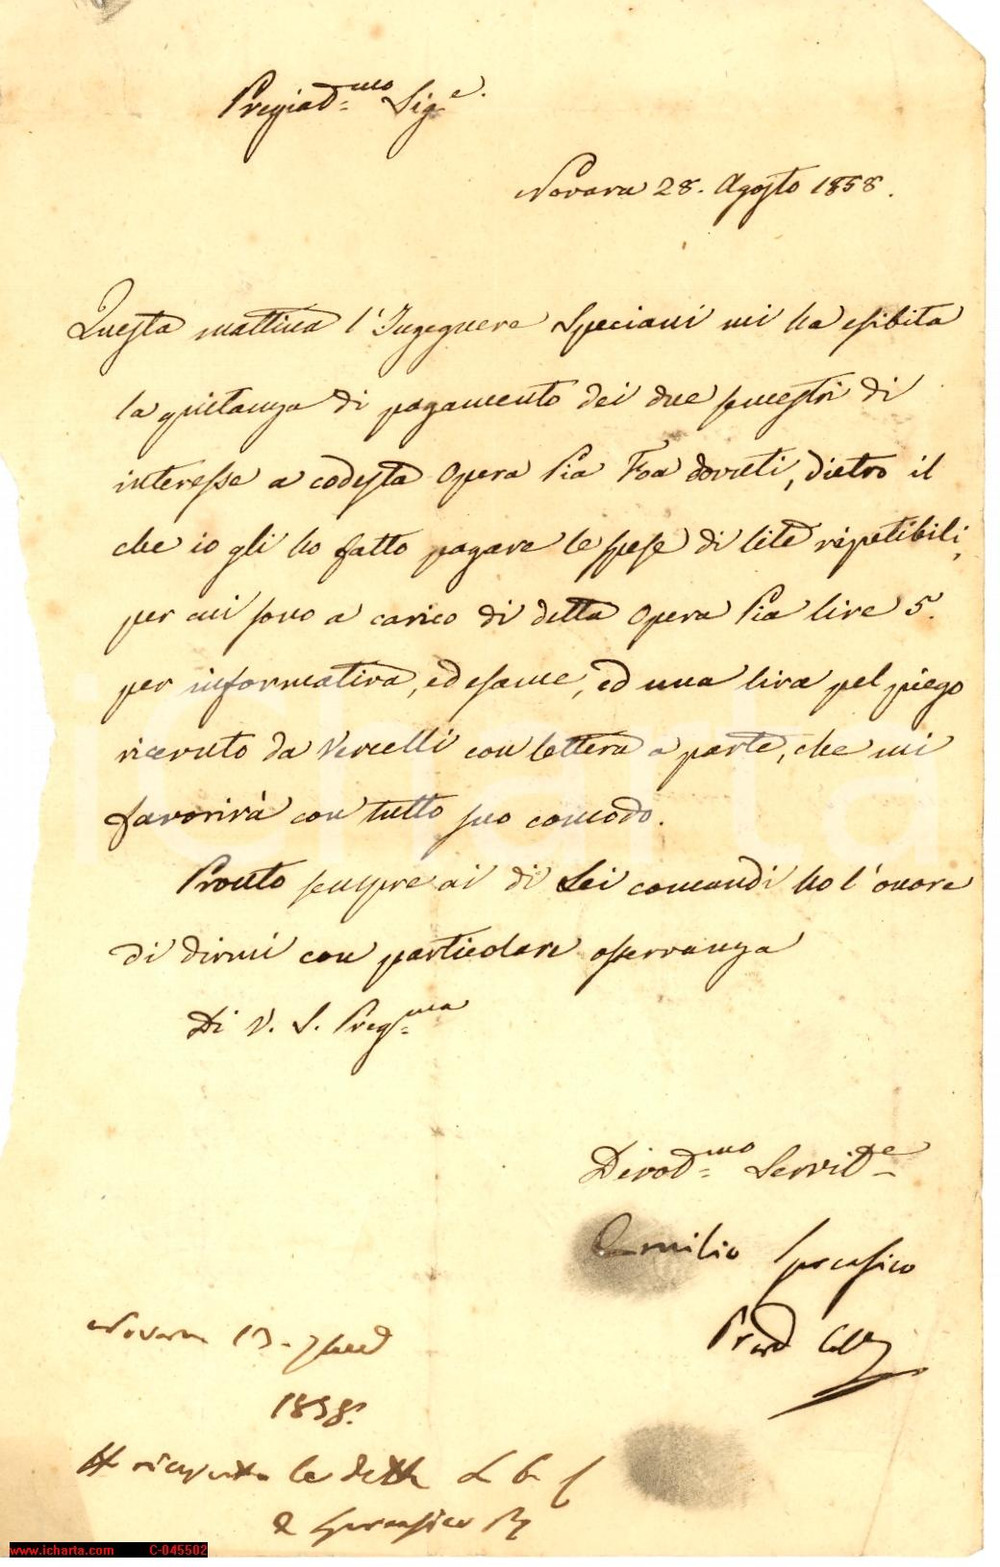 Pregiad.mo Sig.e
Novara 28. Agosto 1858.
Questa mattina l'Ingegnere Speciani mi ha esibita
la quitanza di pagamento dei due semestri di
interesse a codesta Opera Pia Foa dovuti, dietro il
che io gli ho fatto pagare le spese di lite ripetibili,
per cui sono a carico di detta Opera Pia lire 5.
per informativa, ed esame, ed una lira pel piego
ricevuto da Vercelli con lettera a parte, che mi
favorirà con tutto suo comodo.
Pronto sempre ai di Lei comandi ho l'onore
di dirmi con particolare osservanza
Di V. S. Preg.ma
Devod.mo Servid.e
Emilio
Novara 13. 7bre
1858.
ricevuto le dette L. 6
iCharta
www.icharta.com C-045502